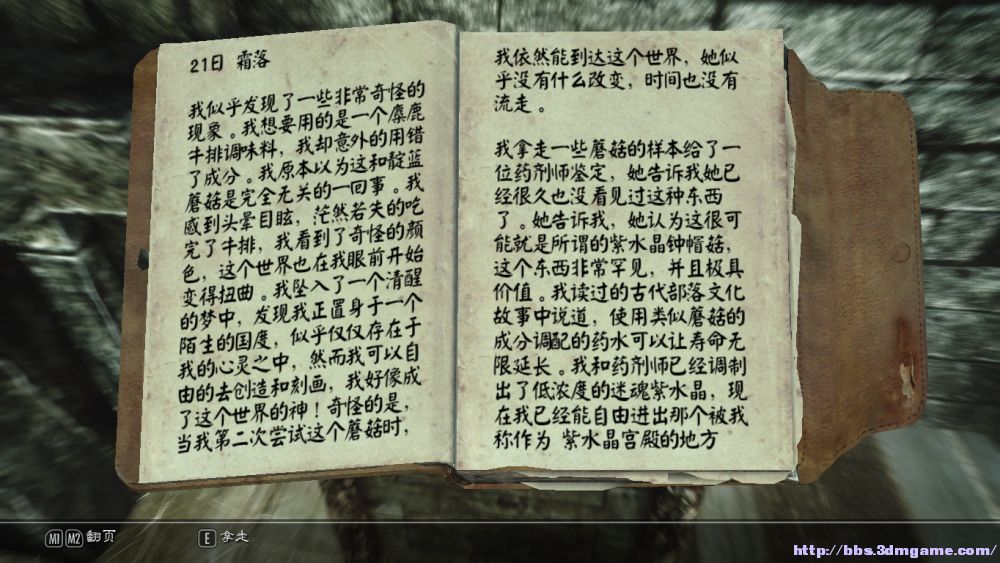 21日 霜落
我似乎发现了一些非常奇怪的
现象。我想要用的是一个麋鹿
牛排调味料，我却意外的用错
了成分。我原本以为这和靛蓝
蘑菇是完全无关的一回事。我
感到头晕目眩，茫然若失的吃
完了牛排，我看到了奇怪的颜
色，这个世界也在我眼前开始
变得扭曲。我坠入了一个清醒
的梦中，发现我正置身于一个
陌生的国度，似乎仅仅存在于
我的心灵之中，然而我可以自
由的去创造和刻画，我好像成
了这个世界的神！奇怪的是，
当我第二次尝试这个蘑菇时，
我依然能到达这个世界，她似
乎没有什么改变，时间也没有
流走。
我拿走一些蘑菇的样本给了一
位药剂师鉴定，她告诉我她已
经很久也没看见过这种东西
了。她告诉我，她认为这很可
能就是所谓的紫水晶钟帽菇，
这个东西非常罕见，并且极具
价值。我读过的古代部落文化
故事中说道，使用类似蘑菇的
成分调配的药水可以让寿命无
限延长。我和药剂师已经调制
出了低浓度的迷魂紫水晶，现
在我已经能自由进出那个被我
称作为 紫水晶宫殿的地方
M1 M2 翻页
E 拿走
http://bbs.3dmgame.com/